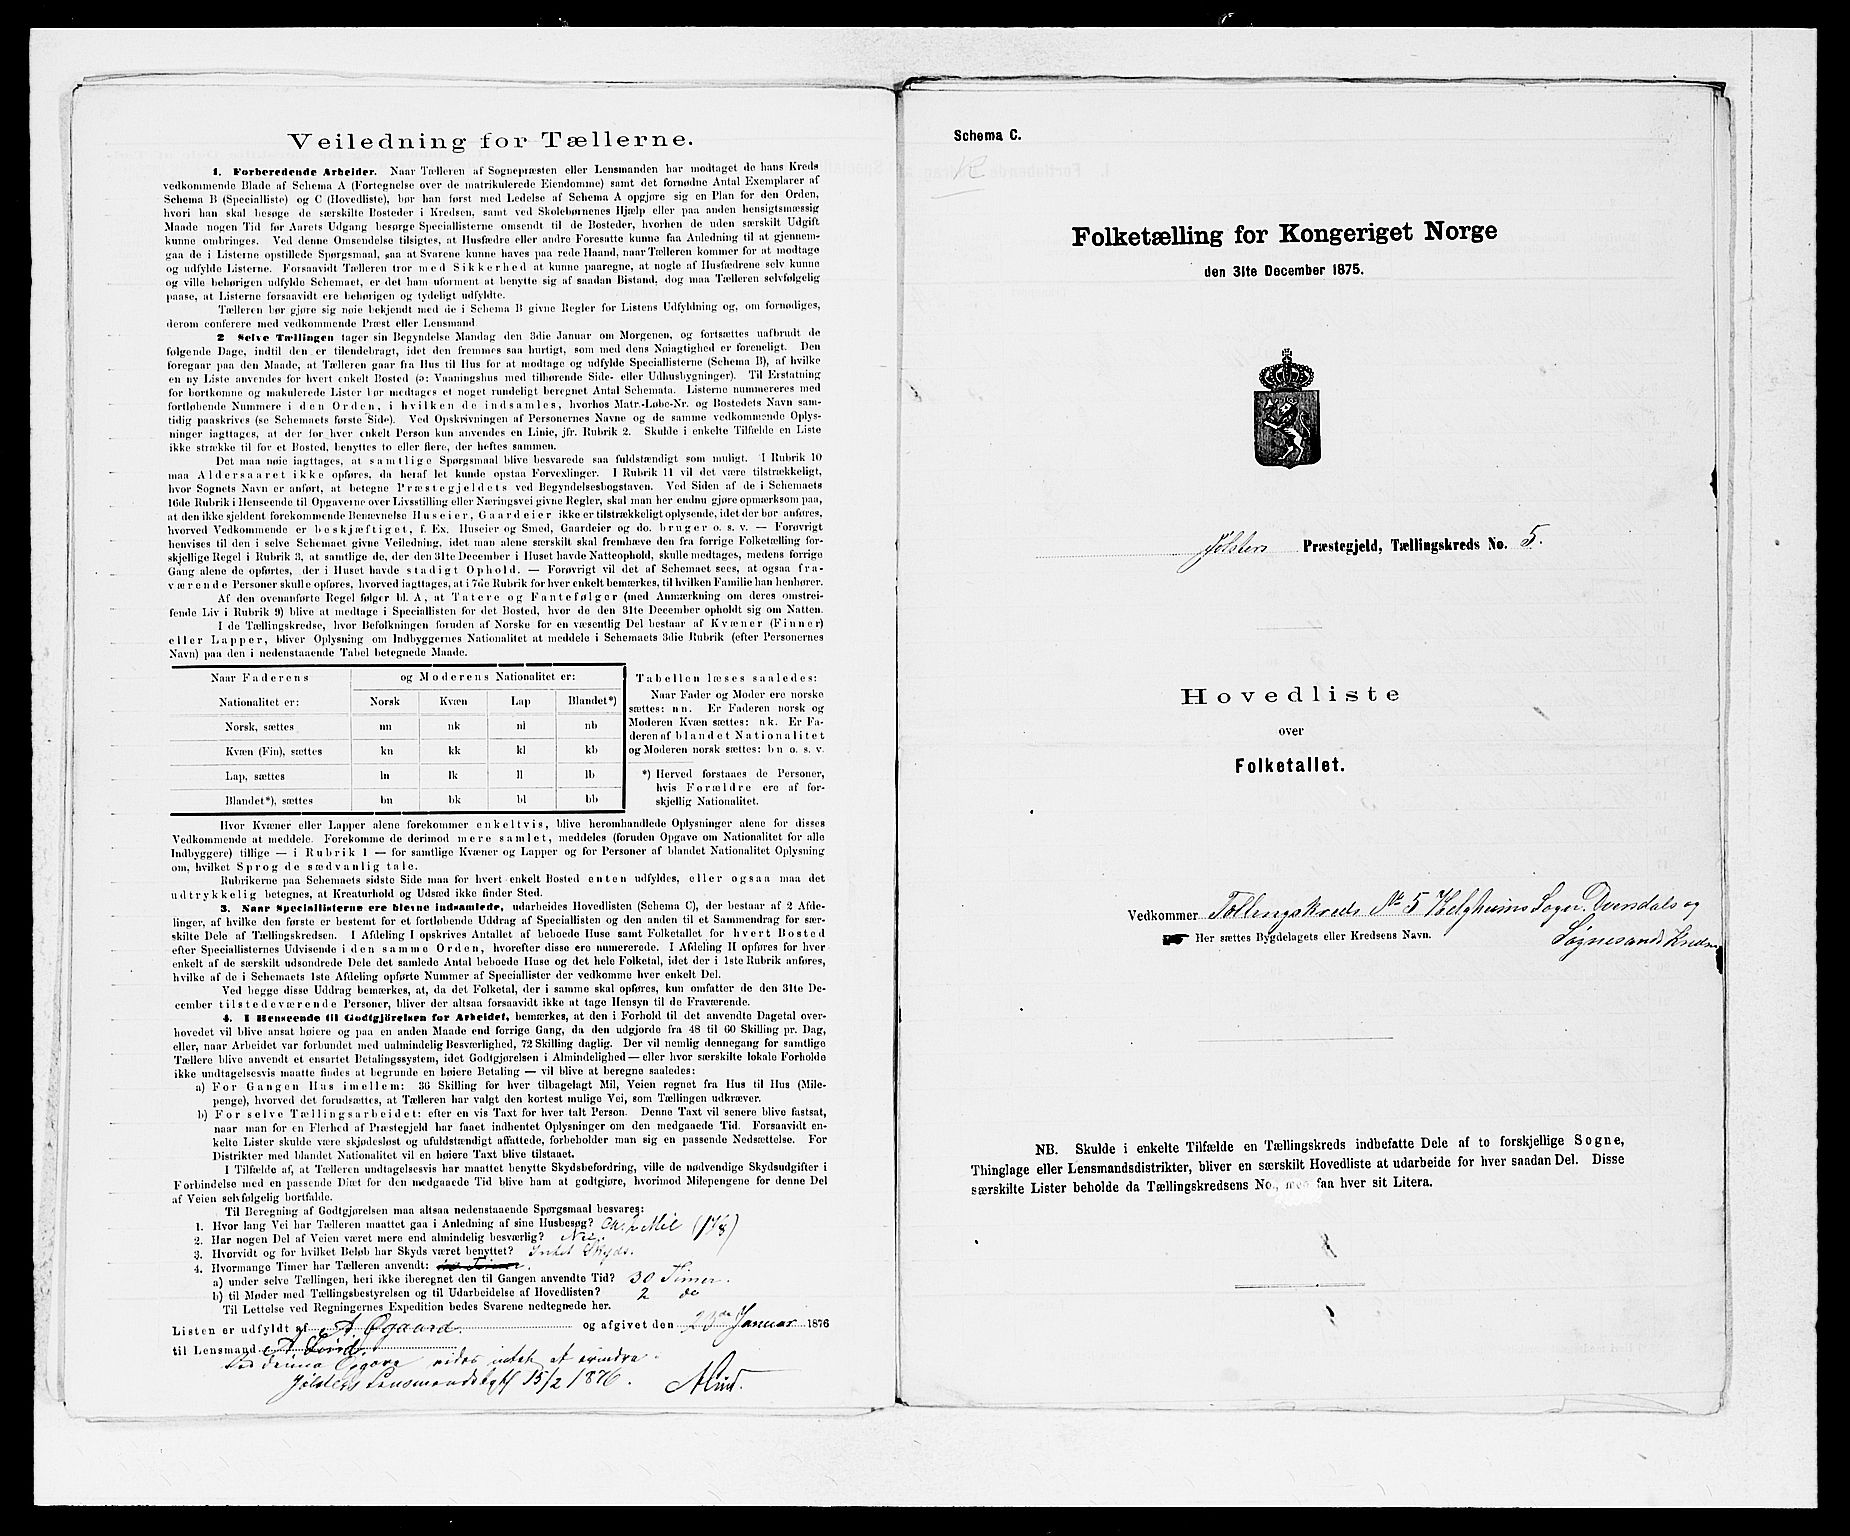 Veiledning for Tællerne.
1. Forberedende Arbeider. Naar Tælleren af Sognepræsten eller Lensmanden har modtaget de hans Kreds
vedkommende Blade af Schema A (Fortegnelse over de matrikulerede Eiendomme) samt det fornødne Antal Exemplarer af
Schema B (Specialliste) og C (Hovedliste), bør han først med Ledelse af Schema A opgjøre sig en Plan for den Orden,
hvori han skal besøge de særskilte Bosteder i Kredsen, samt ved Skolebørnenes Hjælp eller paa anden hensigtsmæssig
Maade nogen Tid før Aarets Udgang besørge Speciallisterne omsendt til de Bosteder, hvorhen de uden særskilt Udgift
kunne ombringes. Ved denne Omsendelse tilsigtes, at Husfædre eller andre Foresatte kunne faa Anledning til at gjennem-
gaa de i Listerne opstillede Spørgsmaal, saa at Svarene kunne haves paa rede Haand, naar Tælleren kommer for at modtage
og udfylde Listerne. Forsaavidt Tælleren tror med Sikkerhed at kunne paaregne, at nogle af Husfædrene selv kunne
og ville behørigen udfylde Schemaet, er det ham uforment at benytte sig af saadan Bistand, dog maa Tælleren selvfølgelig
paase, at Listerne forsaavidt ere behørigen og tydeligt udfyldte.
Tælleren bør gjøre sig nøie bekjendt med de i Schema B givne Regler for Listens Udfyldning og, om fornødiges,
derom conferere med vedkommende Præst eller Lensmand
2 Selve Tællingen tager sin Begyndelse Mandag den 3die Januar om Morgenen, og fortsættes uafbrudt de
følgende Dage, indtil den er tilendebragt, idet den fremmes saa hurtigt, som med dens Nøiagtighed er foreneligt. Den
foregaar paa den Maade, at Tælleren gaar fra Hus til Hus for at modtage og udfylde Speciallisterne (Schema B), af hvilke
en ny Liste anvendes for hvert enkelt Bosted (ɔ: Vaaningshus med tilhørende Side- eller Udhusbygninger). Til Erstatning
for bortkomne og makulerede Lister bør medtages et noget rundeligt beregnet Antal Schemata. Listerne nummereres med
fortløbende Nummere i den Orden, i hvilken de indsamles, hvorhos Matr.-Løbe-Nr. og Bostedets Navn sam-
tidig paaskrives (se Schemaets første Side). Ved Opskrivningen af Personernes Navne og de samme vedkommende Oplys-
ninger iagttages, at der for hver enkelt Person kun anvendes en Linie, jfr. Rubrik 2. Skulde i enkelte Tilfælde en Liste
ikke strække til for et Bosted, benyttes to eller flere, der heftes sammen.
Det maa nøie iagttages, at samtlige Spørgsmaal blive besvarede saa fuldstændigt som muligt. I Rubrik 10
maa Aldersaaret ikke opføres, da heraf let kunde opstaa Forvexlinger. I Rubrik 11 vil det være tilstrækkeligt,
hvor Sognets Navn er anført, at betegne Præstegjeldets ved Begyndelsesbogstaven. Ved Siden af de i Schemaets
16de Rubrik i Henseende til Opgaverne over Livsstilling eller Næringsvei givne Regler, skal man her endnu gjøre opmærksom paa,
at den ikke sjeldent forekommende Benævnelse Huseier, Gaardeier ikke er tilstrækkeligt oplysende, idet der bør anføres,
hvorved Vedkommende er beskjæftiget, f. Ex. Huseier og Smed, Gaardeier og do. bruger o. s. v. — Forøvrigt
henvises til den i selve Schemaet givne Veiledning, idet man alene særskilt skal fremhæve den fra forrige Folketælling for-
skjellige Regel i Rubrik 3, at samtlige de, der den 31te December i Huset havde Natteophold, skulle medtages, medens forrige
Gang alene de opførtes, der i Huset havde stadigt Ophold. — Forøvrigt vil det af Schemaet sees, at ogsaa fra-
værende Personer skulle opføres, hvorved iagttages, at i 7de Rubrik for hver enkelt bemærkes, til hvilken Familie han henhører.
Af den ovenanførte Regel følger bl. A, at Tatere og Fantefølger (med Anmærkning om deres omstrei-
fende Liv i Rubrik 9) blive at medtage i Speciallisten for det Bosted, hvor de den 31te December opholdt sig om Natten.
I de Tællingskredse, hvor Befolkningen foruden af Norske for en væsentlig Del bestaar af Kvæner (Finner)
eller Lapper, bliver Oplysning om Indbyggernes Nationalitet at meddele i Schemaets 3die Rubrik (efter Personernes
Navn) paa den i nedenstaaende Tabel betegnede Maade.
Naar Faderens og Moderens Nationalitet er:
Nationalitet er: Norsk Kvæn Lap Blandet*)
Norsk, sættes nn nk nl nb
Kvæn (Fin), sættes kn kk kl kb
Lap, sættes ln lk ll lb
Blandet*), sættes bn bk bl bb
Tabellen læses saaledes:
Naar Fader og Moder ere norske
sættes: nn. Er Faderen norsk og
Moderen Kvæn sættes: nk. Er Fa-
deren af blandet Nationalitet
og Moderen norsk sættes: bn o. s. v.
*) Herved forstaaes de Personer,
hvis Forældre ere af for-
skjellig Nationalitet.
Hvor Kvæner eller Lapper alene forekommer enkeltvis, blive heromhandlede Oplysninger alene for disses
Vedkommende at meddele. Forekomme de derimod mere samlet, meddeles (foruden Opgave om Nationalitet for alle
Indbyggere) tillige — i Rubrik 1 — for samtlige Kvæner og Lapper og for Personer af blandet Nationalitet Oplysning
om, hvilket Sprog de sædvanlig tale.
Rubrikerne paa Schemaets sidste Side maa for hvert enkelt Bosted enten udfyldes, eller ogsaa maa det
udtrykkelig betegnes, at Kreaturhold og Udsæd ikke finder Sted.
3. Naar Speciallisterne ere blevne indsamlede, udarbeides Hovedlisten (Schema C), der bestaar af 2 Afde-
linger, af hvilke den første er bestemt for et fortløbende Uddrag af Speciallisten og den anden til et Sammendrag for sær-
skilte Dele af Tællingskredsen. I Afdeling I opskrives Antallet af beboede Huse samt Folketallet for hvert Bosted
efter Speciallisternes Udvisende i den samme Orden, hvorefter disse ere numererede. I Afdeling II opføres for hver
enkelt af de særskilt udsondrede Dele det samlede Antal beboede Huse og det hele Folketal, idet der i 1ste Rubrik anføres,
hvilke af de i Schemaets 1ste Afdeling opførte Nummer af Speciallister der vedkomme hver enkelt Del.
Ved begge disse Uddrag bemærkes, at, da det Folketal, der i samme skal opføres, kun omfatter de den 31te De-
cember tilstedeværende Personer, bliver der altsaa forsaavidt ikke at tage Hensyn til de Fraværende.
4. I Henseende til Godtgjörelsen for Arbeidet, bemærkes, at den i Forhold til det anvendte Dagetal over-
hovedet vil blive ansat høiere og paa en anden Maade end forrige Gang, da den udgjorde fra 48 til 60 Skilling pr. Dag,
eller, naar Arbeidet var forbundet med ualmindelig Besværlighed, 72 Skilling daglig. Der vil nemlig dennegang for samtlige
Tællere blive anvendt et ensartet Betalingssystem, idet Godtgjørelsen i Almindelighed — eller hvor særskilte lokale Forholde
ikke undtagelsesvis maatte findes at begrunde en høiere Betaling — vil blive at beregne saaledes:
a) For Gangen Hus imellem: 36 Skilling for hver tilbagelagt Mil, Veien regnet fra Hus til Hus (Mile-
penge), hvorved det forudsættes, at Tælleren har valgt den kortest mulige Vei, som Tællingen udkræver.
b) For selve Tællingsarbeidet: efter en vis Taxt for hver talt Person. Denne Taxt vil senere blive fastsat,
naar man for en Flerhed af Præstegjeld har faaet indhentet Oplysninger om den medgaaede Tid. Forsaavidt en-
kelte Lister skulde være skjødesløst og ufuldstændigt affattede, forbeholder man sig en passende Nedsættelse. For
Distrikter med blandet Nationalitet vil en høiere Taxt blive tilstaaet.
I Tilfælde af, at Tælleren undtagelsesvis har maattet benytte Skydsbefordring, ville de nødvendige Skydsudgifter i
Forbindelse med en passende Diæt for den medgaaede Tid blive ham at godtgjøre, hvorimod Milepengene for denne Del
af Veien selvfølgelig bortfalde.
Til Beregning af Godtgjörelsen maa altsaa nedenstaaende Spørgsmaal besvares:
1. Hvor lang Vei har Tælleren maattet gaa i Anledning af sine Husbesøg? Mil (1 7/8)
2. Har nogen Del af Veien været mere end almindelig besværlig? Nei.
3. Hvorvidt og for hvilket Beløb har Skyds været benyttet? Intet Skyds.
4. Hvormange Timer har Tælleren anvendt:
a) under selve Tællingen, heri ikke iberegnet den til Gangen anvendte Tid? 30 Timer.
b) til Møder med Tællingsbestyrelsen og til Udarbeidelse af Hovedlisten? 2 do
Til Lettelse ved Regningernes Expedition bedes Svarene nedtegnede her.
Listen er udfyldt af A. Øgaard. og afgivet den 23de Januar 1876
til Lensmand A. Lund.
Ved denne Opgave vides intet at erindre.
Jølsters Lensmandsbst 15/2 1876. ALund.
Schema C.
Folketælling for Kongeriget Norge
den 31te December 1875.
Jølsters Præstegjeld, Tællingskreds No. 5.
Hovedliste
over
Folketallet.
Vedkommer Tællingskreds No 5 Helgheims Sogn. og
Her sættes Bygdelagets eller Kredsens Navn. Søgnesands Kreds
NB. Skulde i enkelte Tilfælde en Tællingskreds indbefatte Dele af to forskjellige Sogne,
Thinglage eller Lensmandsdistrikter, bliver en særskilt Hovedliste at udarbeide for hver saadan Del. Disse
særskilte Lister beholde da Tællingskredsens No., men faa hver sit Litera.